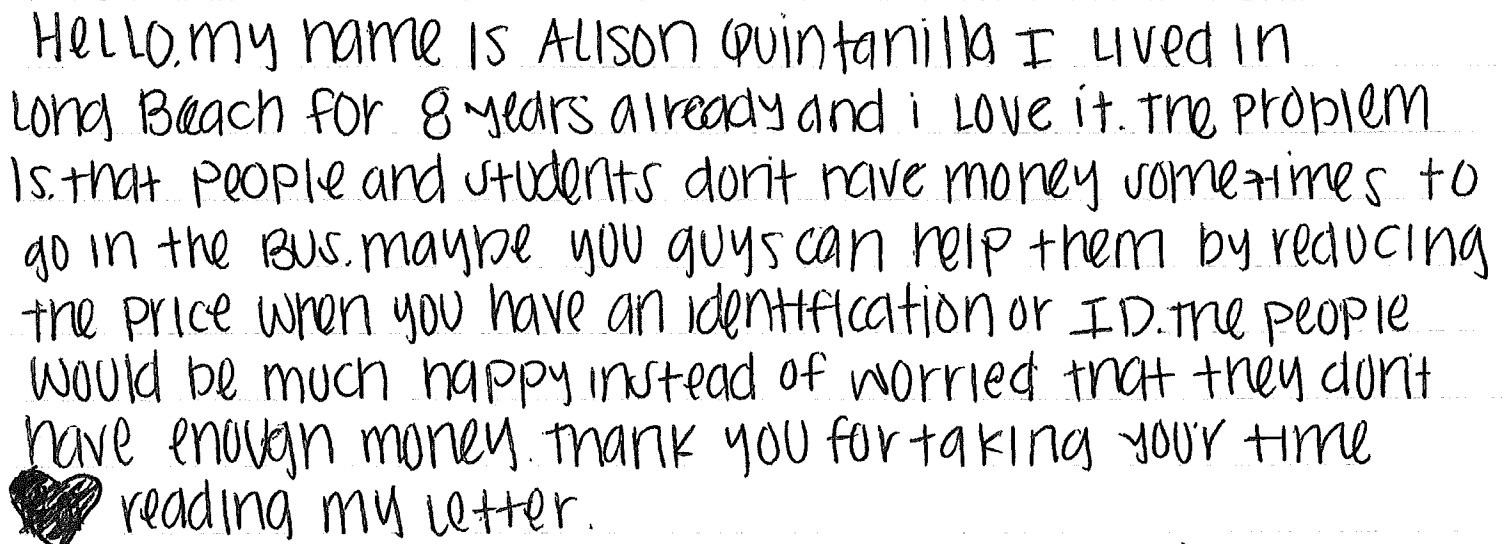 Hello, my name is Alison Quintanilla I lived in
Long Beach for 8 years already and i love it. The problem
Is. that people and students don't have money sometimes to
go in the Bus. maybe you guys can help them by reducing
the price when you have an identification or ID. The people
would be much happy instead of worried that they don't
have enough money. Thank you for taking your time
reading my letter.